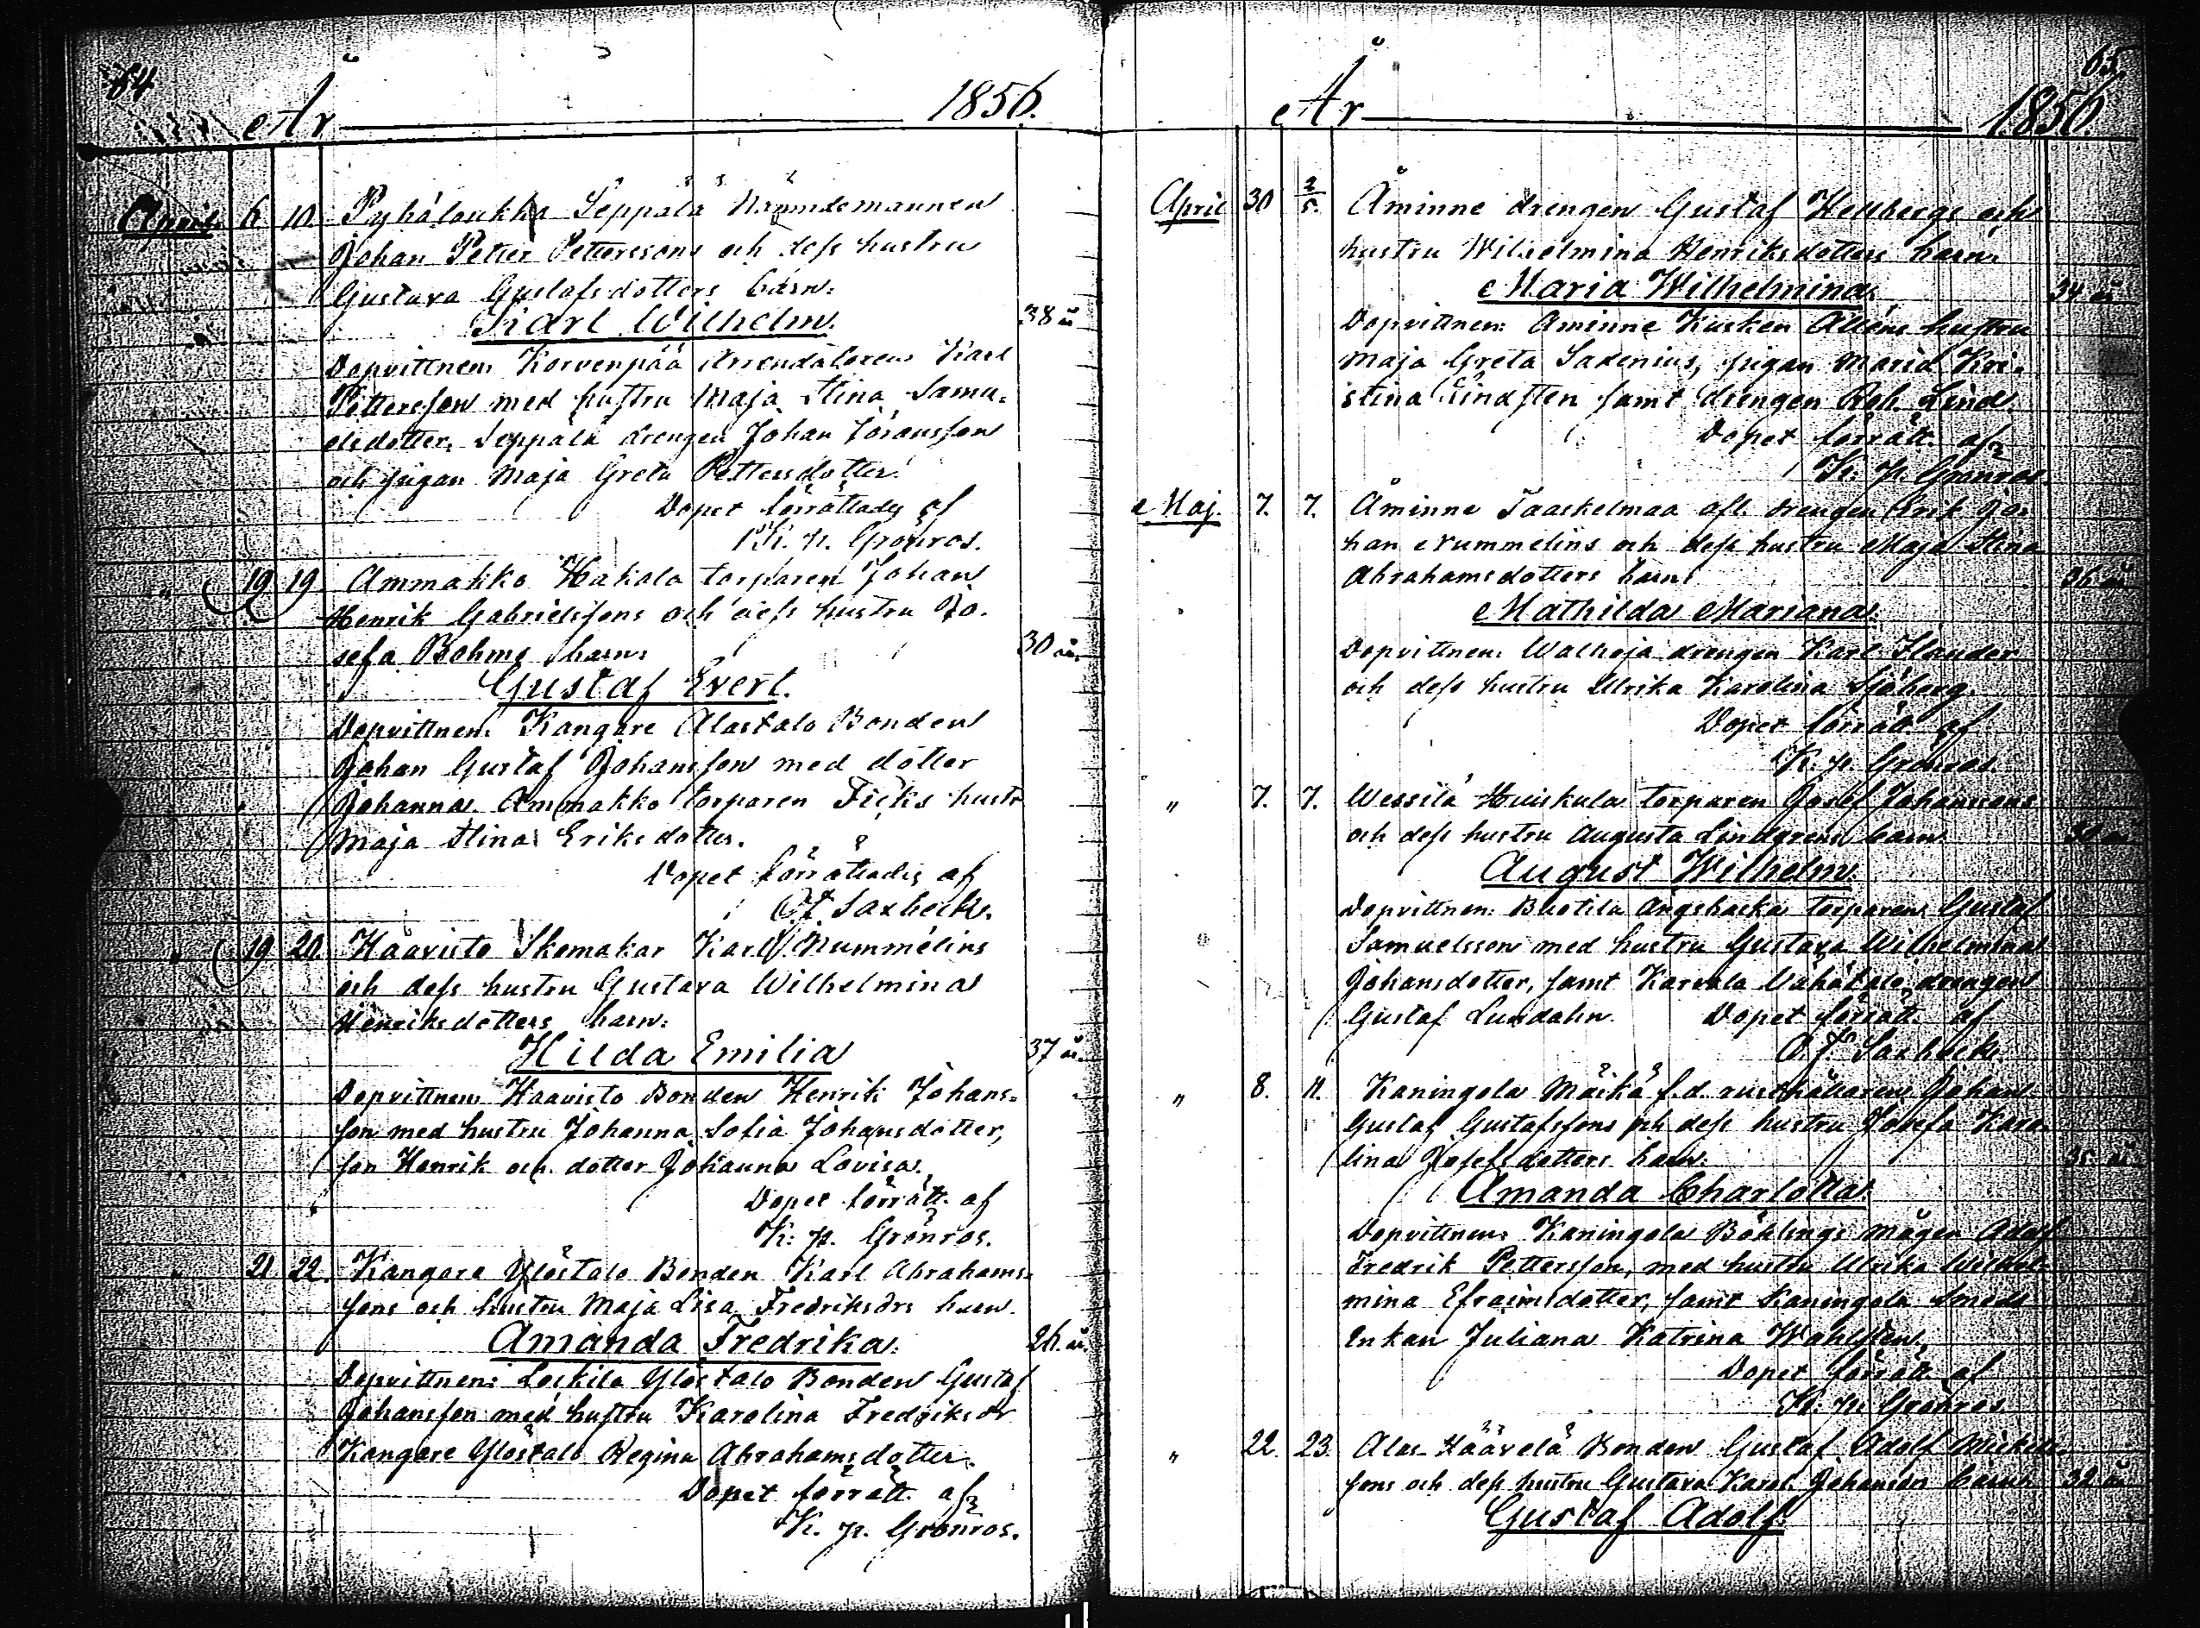 64
År 1856.
April. 6 10. Pyhäloukka Seppälä Nämndemannen
Johan Petter Petterssons och dess hustru
Gustava Gustafsdotters barn:
Karl Wilhelm. 38 år
Dopvittnen: Korvenpää Arrendatoren Karl
Pettersson med hustru Maja Stina Samu-
elsdotter, Seppälä drengen Johan Göransson
och pigan Maja Greta Pettersdotter.
Dopet förrättades af
K. p. Grönros.
" 19 19 Ammakko Hakala torparen Johan
Henrik Gabrielssons och dess hustru Jo-
sefa Bohms barn: 30 år.
Gustaf Evert.
Dopvittnen: Kangare Alastalo Bonden
Johan Gustaf Johansson med dotter
Johanna. Ammakko torparen Ficks hustr
Maja Stina Eriksdotter.
Dopet förrättades af
O. J. Saxbeck.
" 19 20. Haavisto Skomakar Karl Nummelins
och dess hustru Gustava Wilhelmina
Henriksdotters barn:
Hilda Emilia 37 år.
Dopvittnen: Haavisto Bonden Henrik Johans-
son med hustru Johanna Sofia Johansdotter,
son Henrik och dotter Johanna Lovisa.
Dopet förrätt. af
K. p. Grönros.
21 22. Kangare Ylöstalo Bonden Karl Abrahams-
sons och hustru Maja Lisa Fredriksdrs barn.
Amanda Fredrika. 26 år.
Dopvittnen: Leikila Ylöstalo Bonden Gustaf
Johansson med hustru Karolina Fredriksdr
Kangare Ylöstalo Regina Abrahamsdotter.
Dopet förrätt. af
K. p. Grönros.
65
År 1856.
April 30 2/5. Åminne drengen Gustaf Hellbergs och
hustru Wilhelmina Henriksdotters barn:
Maria Wilhelmina. 34 år
Dopvittnen: Åminne Kusken Alléns hustru
Maja Greta Saxenius, pigan Maria Kri-
stina Lindsten samt drengen Rob. Lind.
Dopet förrätt. af
K. p. Grönros.
Maj. 7. 7. Åminne Taaskelmaa afl. drengen Erik Jo-
han Nummelins och dess hustru Maja Stina
Abrahamsdotters barn: 36 år
Mathilda Mariana.
Dopvittnen: Walhoja drengen Karl Flander
och dess hustru Ulrika Karolina Sjöberg.
Dopet förrätt. af
K. p. Grönros.
" 7. 7. Wessilä Huiskula torparen Josef Johanssons
och dess hustru Augusta Lindgrens barn
August Wilhelm.
Dopvittnen: Buotila Ängsbacka torparen Gustaf
Samuelsson med hustru Gustava Wilhelmina
Johansdotter, samt Karvala Vähätalo drengen
Gustaf Lundahn. Dopet förrätt. af
O. J. Saxbeck.
" 8. 11. Kaningola Mäikä f.d. rusthållaren Johan
Gustaf Gustafssons och dess hustru Josefa Karo-
lina Josefsdotters barn: 35 år
Amanda Charlotta.
Dopvittnen: Kaningola Böhlings mågen Adolf
Fredrik Pettersson, med hustru Ulrika Wilhel-
mina Efraimsdotter, samt Kaningola Smeds
Enkan Juliana Katrina Wahlsten.
Dopet förrätt. af
K. p. Grönros
" 22. 23. Alas-Häävelä Bonden Gustaf Adolf Mickels-
sons och dess hustru Gustava Karol. Johansdr barn. 32 år
Gustaf Adolf.